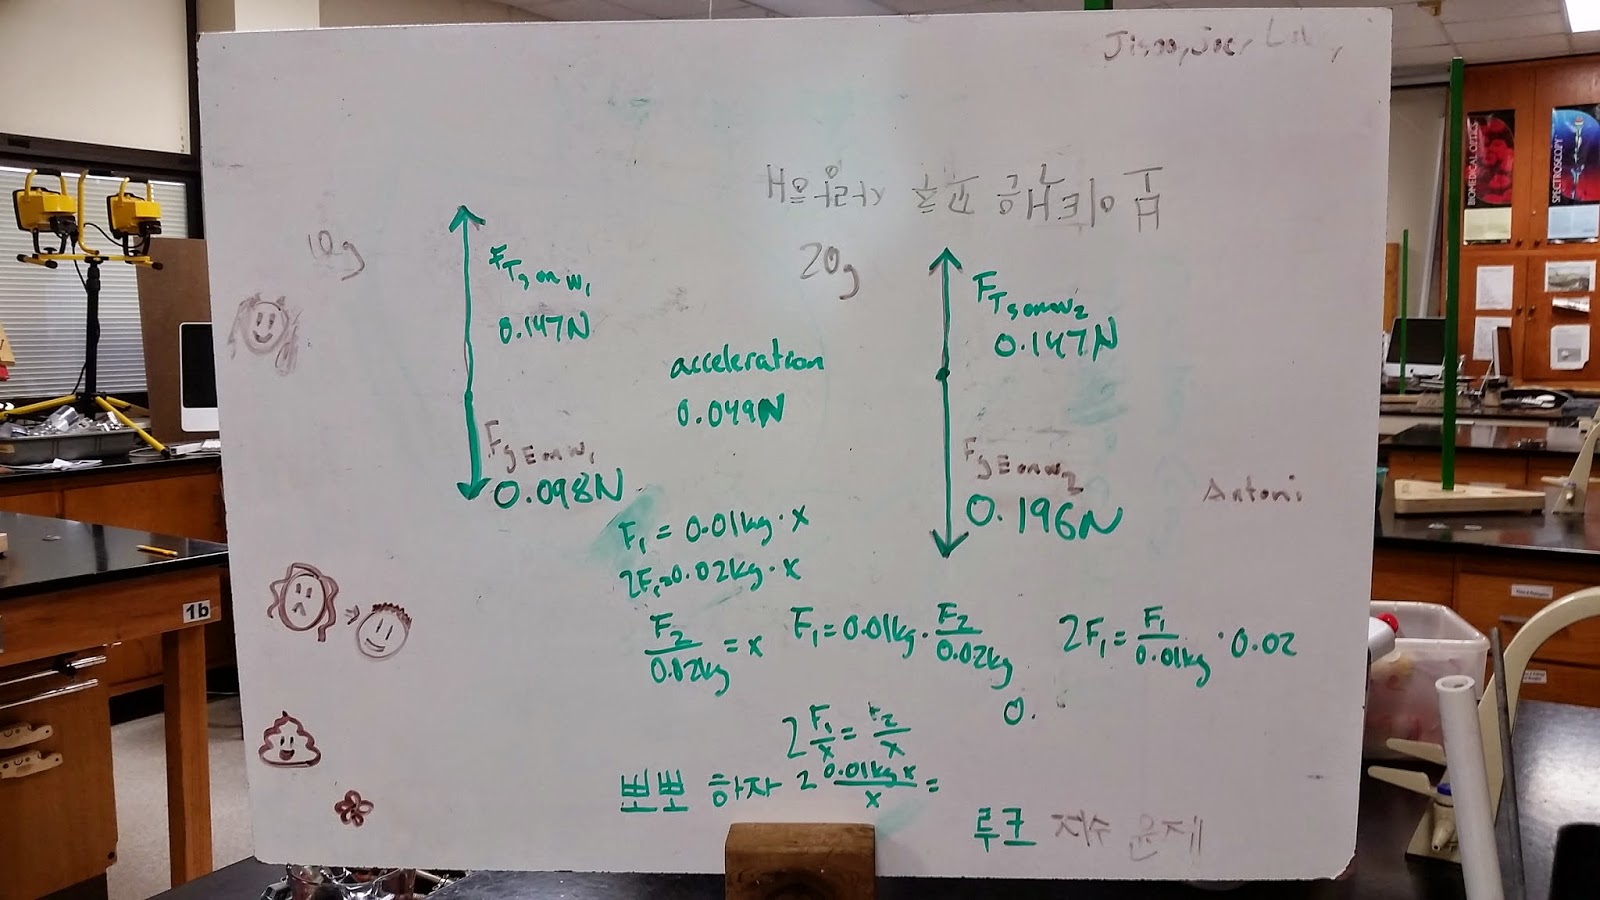 10g
F T s on w₁
0.147N
F g E on w₁
0.098N
acceleration
0.049N
20g
F T s on w₂
0.147N
F g E on w₂
0.196N
Antoni
F₁ = 0.01kg · x
2F₁ = 0.02kg · x
F₂/0.02kg = x
F₁ = 0.01kg · F₂/0.02kg
2F₁ = F₁/0.01kg · 0.02
0.
2 F₁/x = F₂/x
뽀뽀 하자 2 0.01kg x/x =
루크 지수 윤제
1b
BIOMEDICAL OPTICS
SPECTROSCOPY